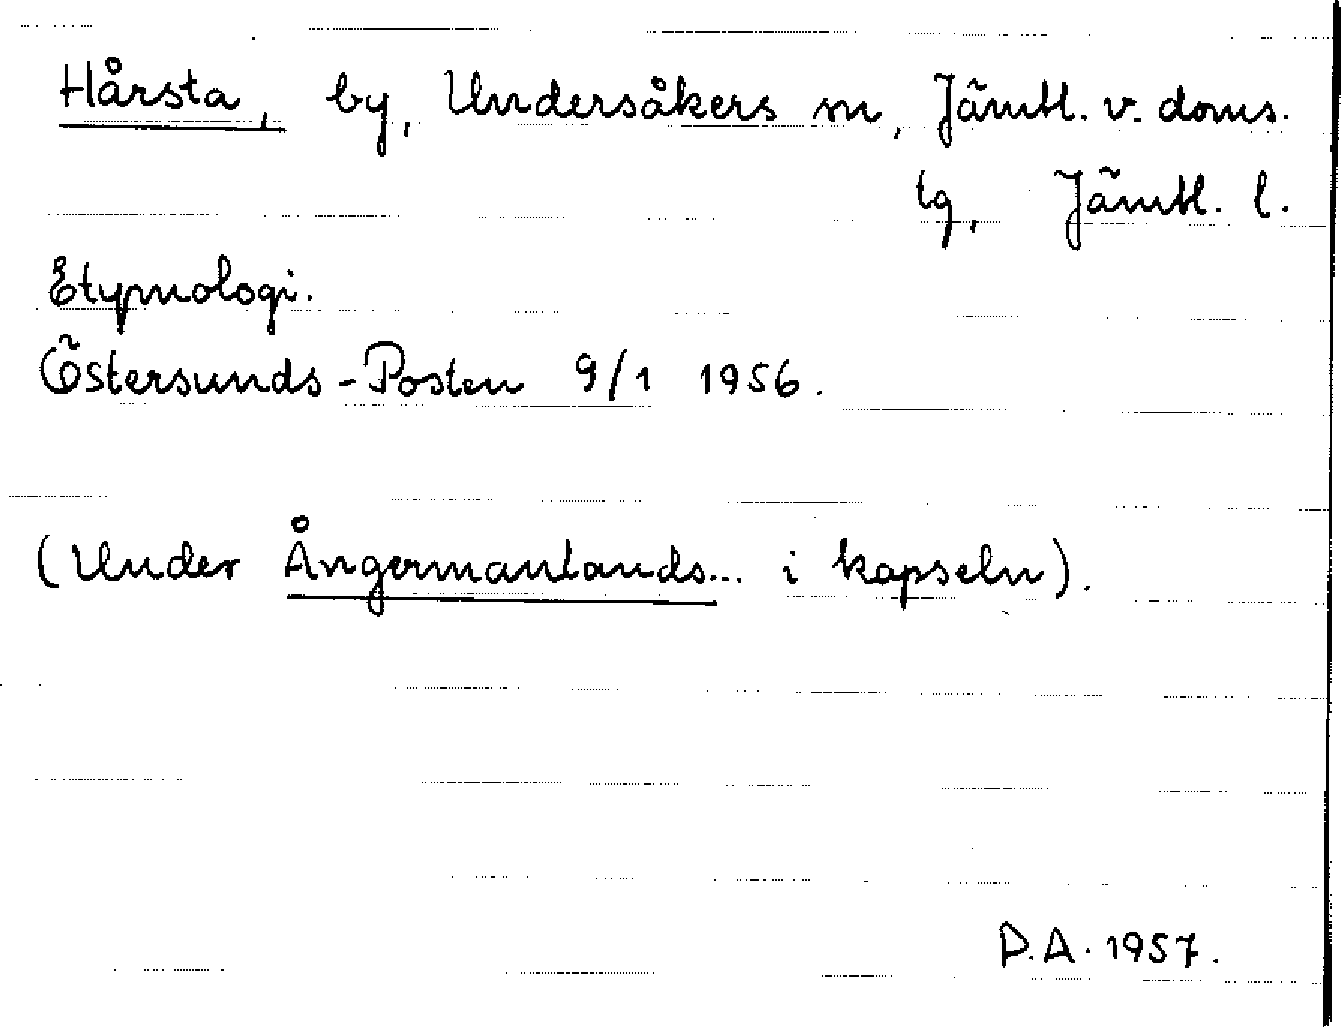 Hårsta, by, Undersåkers sn, Jämtl. v. doms.
tg, Jämtl. l.
Etymologi.
Östersunds-Posten 9/1 1956.
(Under Ångermanlands... i kapseln).
D.A. 1957.